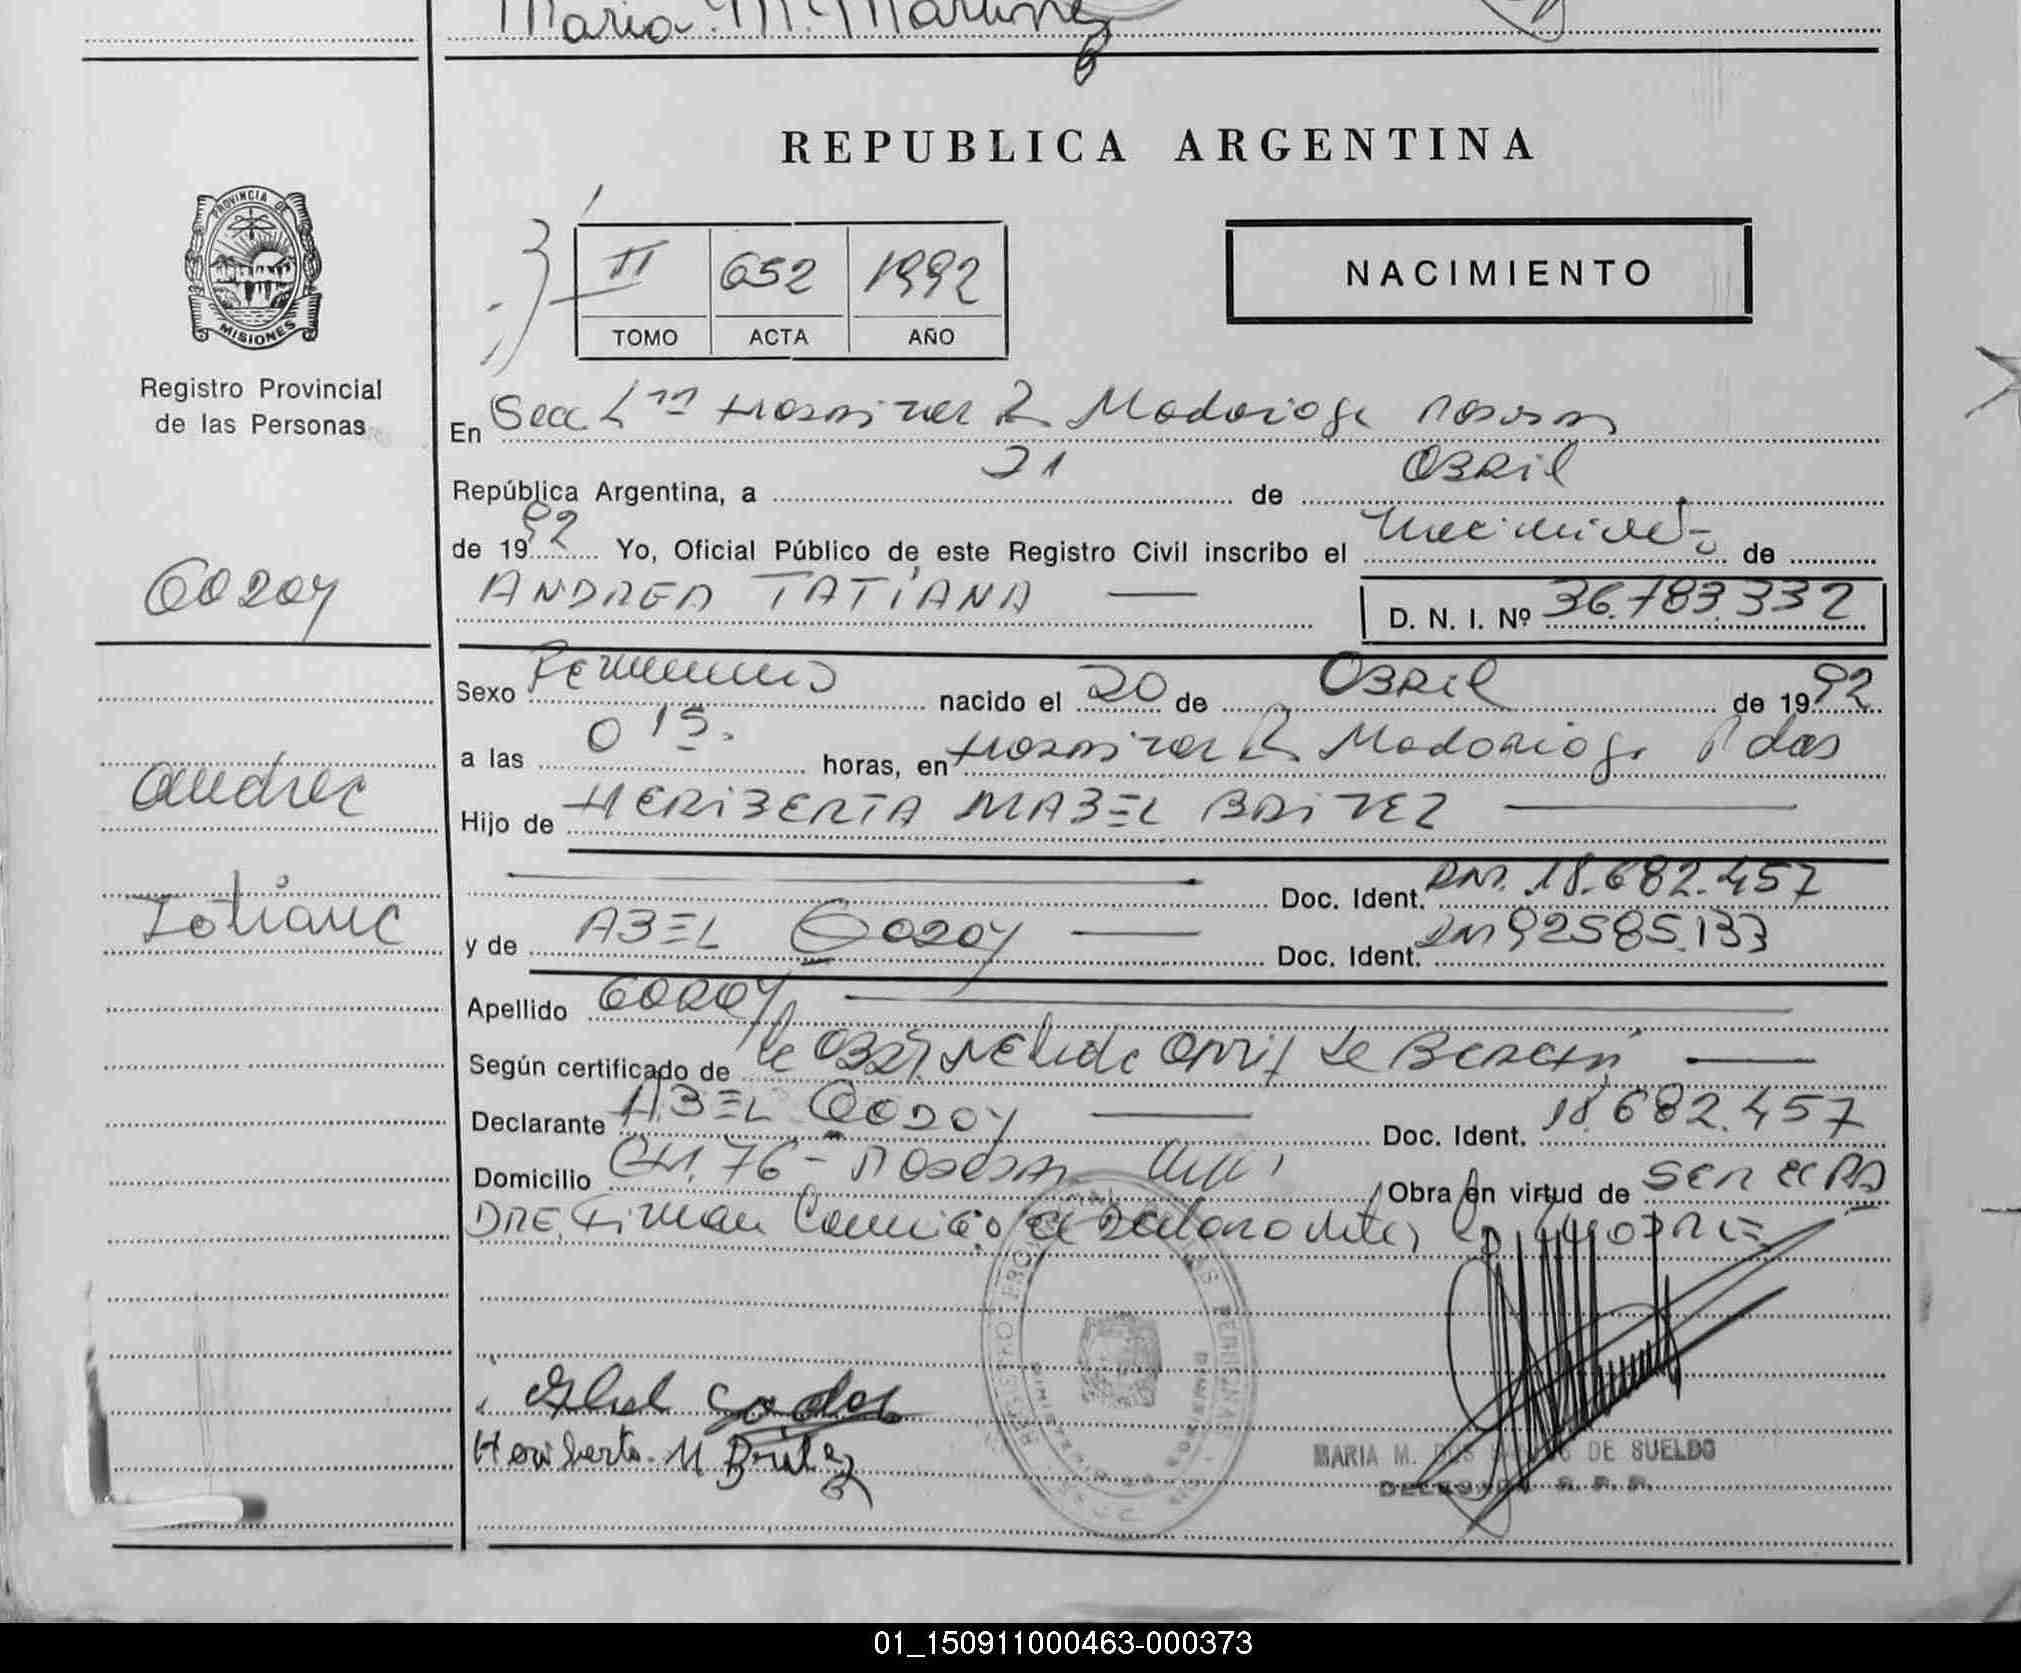 Maria M. Martinez
REPUBLICA ARGENTINA
PROVINCIA DE
MISIONES
Registro Provincial
de las Personas
II 652 1992
TOMO ACTA AÑO
NACIMIENTO
En Secc Hospital R Madariaga Posadas
República Argentina, a 21 de Abril
de 1992 Yo, Oficial Público de este Registro Civil inscribo el nacimiento de
ANDREA TATIANA D. N. I. Nº 36.783.332
Godoy
Andrea
Tatiana
Sexo Femenino nacido el 20 de Abril de 1992
a las 0 15. horas, en Hospital R Madariaga Pdas
Hijo de HERIBERTA MABEL BRITEZ
Doc. Ident. DNI. 18.682.457
y de ABEL GODOY Doc. Ident. DNI 92585.133
Apellido GODOY
Según certificado de la Obst. Nelida de
Declarante ABEL GODOY Doc. Ident. 18.682.457
Domicilio CH. 76 - Posadas Obra en virtud de SER EL PA
DRE, Firman
Abel Godoy
Heriberta M Britez
MARIA M. DOS SANTOS DE SUELDO
DELEGADA R. P. P.
01_150911000463-000373